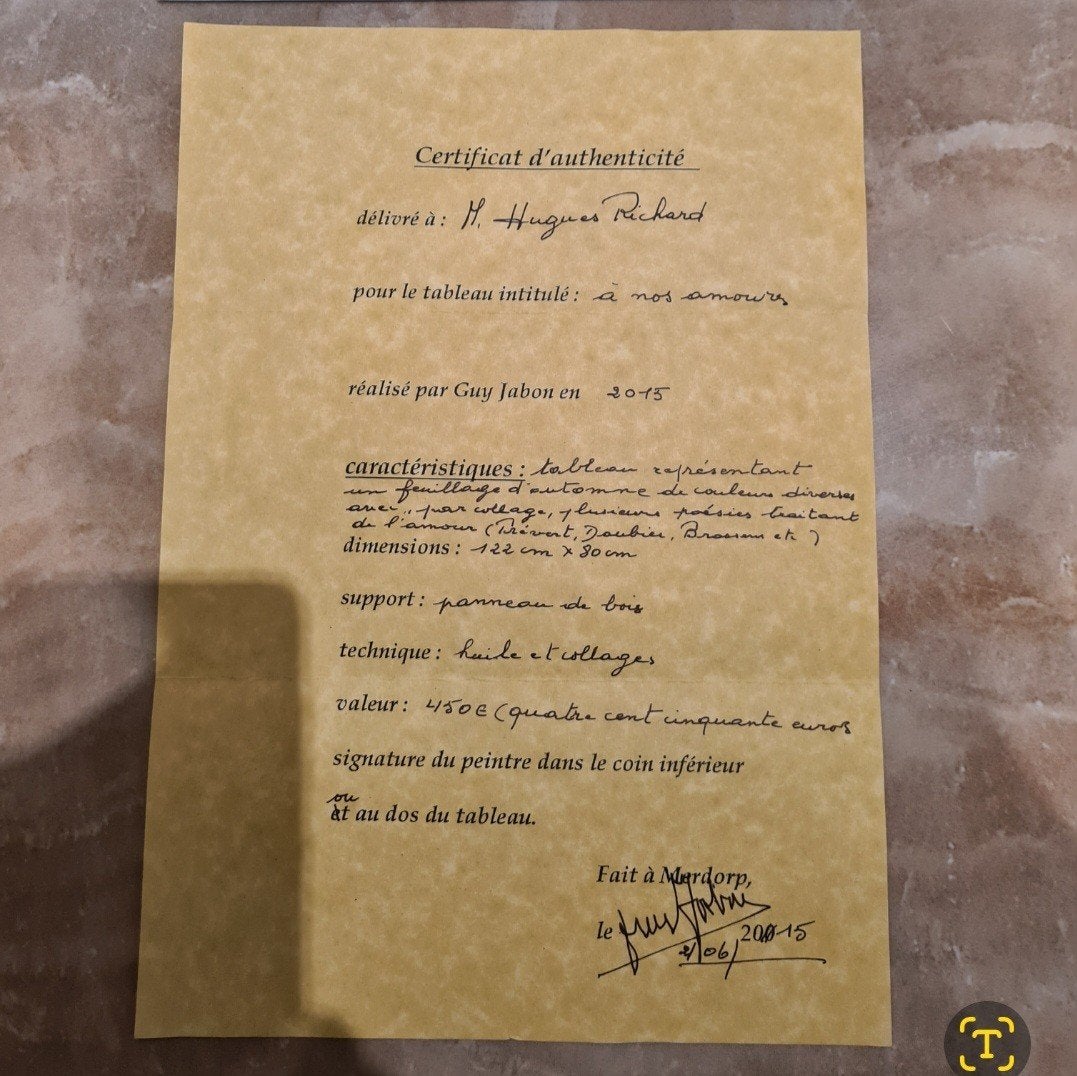 Certificat d'authenticité
délivré à : M. Hugues Richard
pour le tableau intitulé : à nos amours
réalisé par Guy Jabon en 2015
caractéristiques : tableau représentant
un feuillage d'automne de couleurs diverses
avec, par collage, plusieurs poésies traitant
de l'amour (Prévert, Daubier, Brassens etc)
dimensions : 122 cm x 80 cm
support : panneau de bois
technique : huile et collages
valeur : 450€ (quatre cent cinquante euros
signature du peintre dans le coin inférieur
ou
et au dos du tableau.
Fait à Merdorp,
le 2/06/2015
T